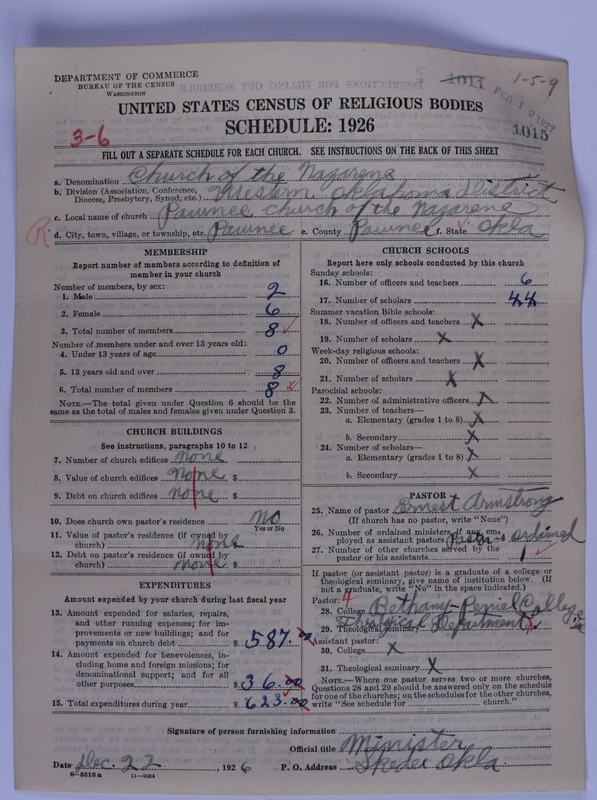 DEPARTMENT OF COMMERCE
BUREAU OF THE CENSUS
WASHINGTON
1011
1-5-9
FEB 12 1927
1015
UNITED STATES CENSUS OF RELIGIOUS BODIES
SCHEDULE: 1926
3-6
FILL OUT A SEPARATE SCHEDULE FOR EACH CHURCH. SEE INSTRUCTIONS ON THE BACK OF THIS SHEET
a. Denomination Church of the Nazarene
b. Division (Association, Conference, Diocese, Presbytery, Synod, etc.) Western Oklahoma District
c. Local name of church Pawnee church of the Nazarene
R
d. City, town, village, or township, etc. Pawnee e. County Pawnee f. State Okla
MEMBERSHIP
Report number of members according to definition of
member in your church
Number of members, by sex:
1. Male 2
2. Female 6
3. Total number of members 8
Number of members under and over 13 years old:
4. Under 13 years of age 0
5. 13 years old and over 8
6. Total number of members 8
NOTE.—The total given under Question 6 should be the
same as the total of males and females given under Question 3.
CHURCH BUILDINGS
See instructions, paragraphs 10 to 12
7. Number of church edifices none
8. Value of church edifices none $
9. Debt on church edifices none $
10. Does church own pastor's residence no
Yes or No
11. Value of pastor's residence (if owned by
church) none $
12. Debt on pastor's residence (if owned by
church) none $
EXPENDITURES
Amount expended by your church during last fiscal year
13. Amount expended for salaries, repairs,
and other running expenses; for im-
provements or new buildings; and for
payments on church debt $ 587.00
14. Amount expended for benevolences, in-
cluding home and foreign missions; for
denominational support; and for all
other purposes $ 36.00
15. Total expenditures during year $ 623.00
CHURCH SCHOOLS
Report here only schools conducted by this church
Sunday schools:
16. Number of officers and teachers 6
17. Number of scholars 44
Summer vacation Bible schools:
18. Number of officers and teachers X
19. Number of scholars X
Week-day religious schools:
20. Number of officers and teachers X
21. Number of scholars X
Parochial schools:
22. Number of administrative officers X
23. Number of teachers—
a. Elementary (grades 1 to 8) X
b. Secondary X
24. Number of scholars—
a. Elementary (grades 1 to 8) X
b. Secondary X
PASTOR
25. Name of pastor Ernest Armstrong
(If church has no pastor, write "None")
26. Number of ordained ministers, if any, em-
ployed as assistant pastors ordained
27. Number of other churches served by the
pastor or his assistants 1
If pastor (or assistant pastor) is a graduate of a college or
theological seminary, give name of institution below. (If
not a graduate, write "No" in the space indicated)
Pastor: 4
28. College Bethany-Peniel College
29. Theological seminary Theological Department
Assistant pastor:
30. College X
31. Theological seminary X
NOTE.—Where one pastor serves two or more churches,
Questions 28 and 29 should be answered only on the schedule
for one of the churches; on the schedules for the other churches,
write "See schedule for church."
Signature of person furnishing information
Official title Minister
Date Dec. 22, 1926 P. O. Address Skedee Okla
8—5518 a 11—9034